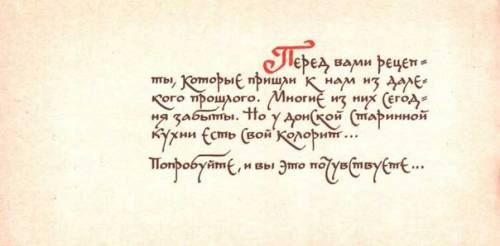 Перед вами рецеп-
ты, которые пришли к нам из дале-
кого прошлого. Многие из них сегод-
ня забыты. Но у донской старинной
кухни есть свой колорит...
Попробуйте, и вы это почувствуете...